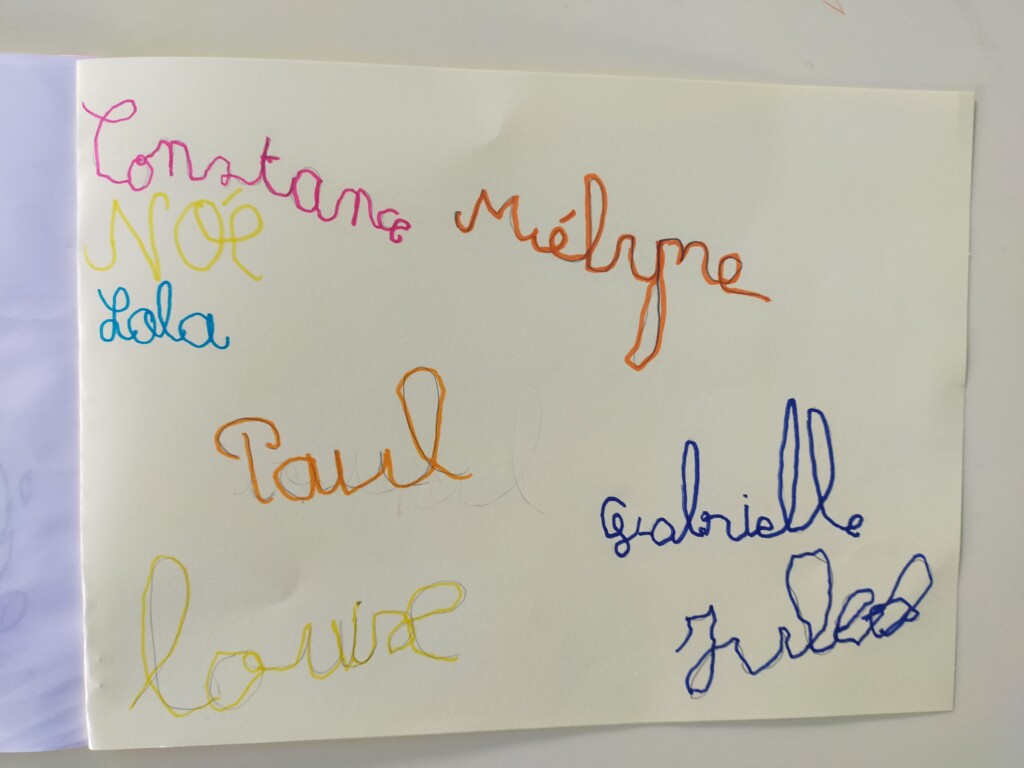 Constance
Mélyne
NOé
Lola
Paul
Gabrielle
Louise
Jules